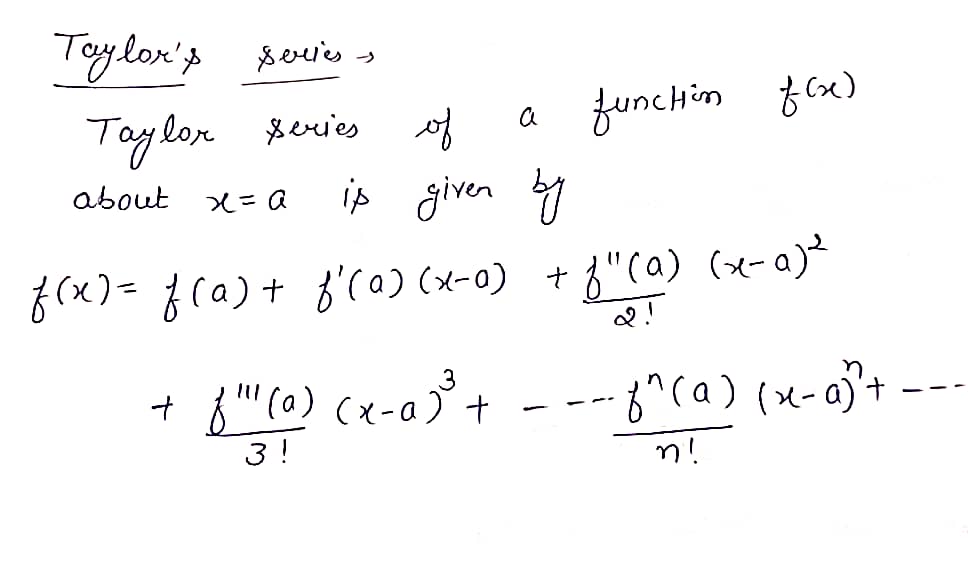 Taylor's series →
Taylor series of a function f(x)
about x=a is given by
f(x)= f(a) + f'(a) (x-a) + f''(a)/2! (x-a)²
+ f'''(a)/3! (x-a)³ + - ---- fⁿ(a)/n! (x-a)ⁿ + ---